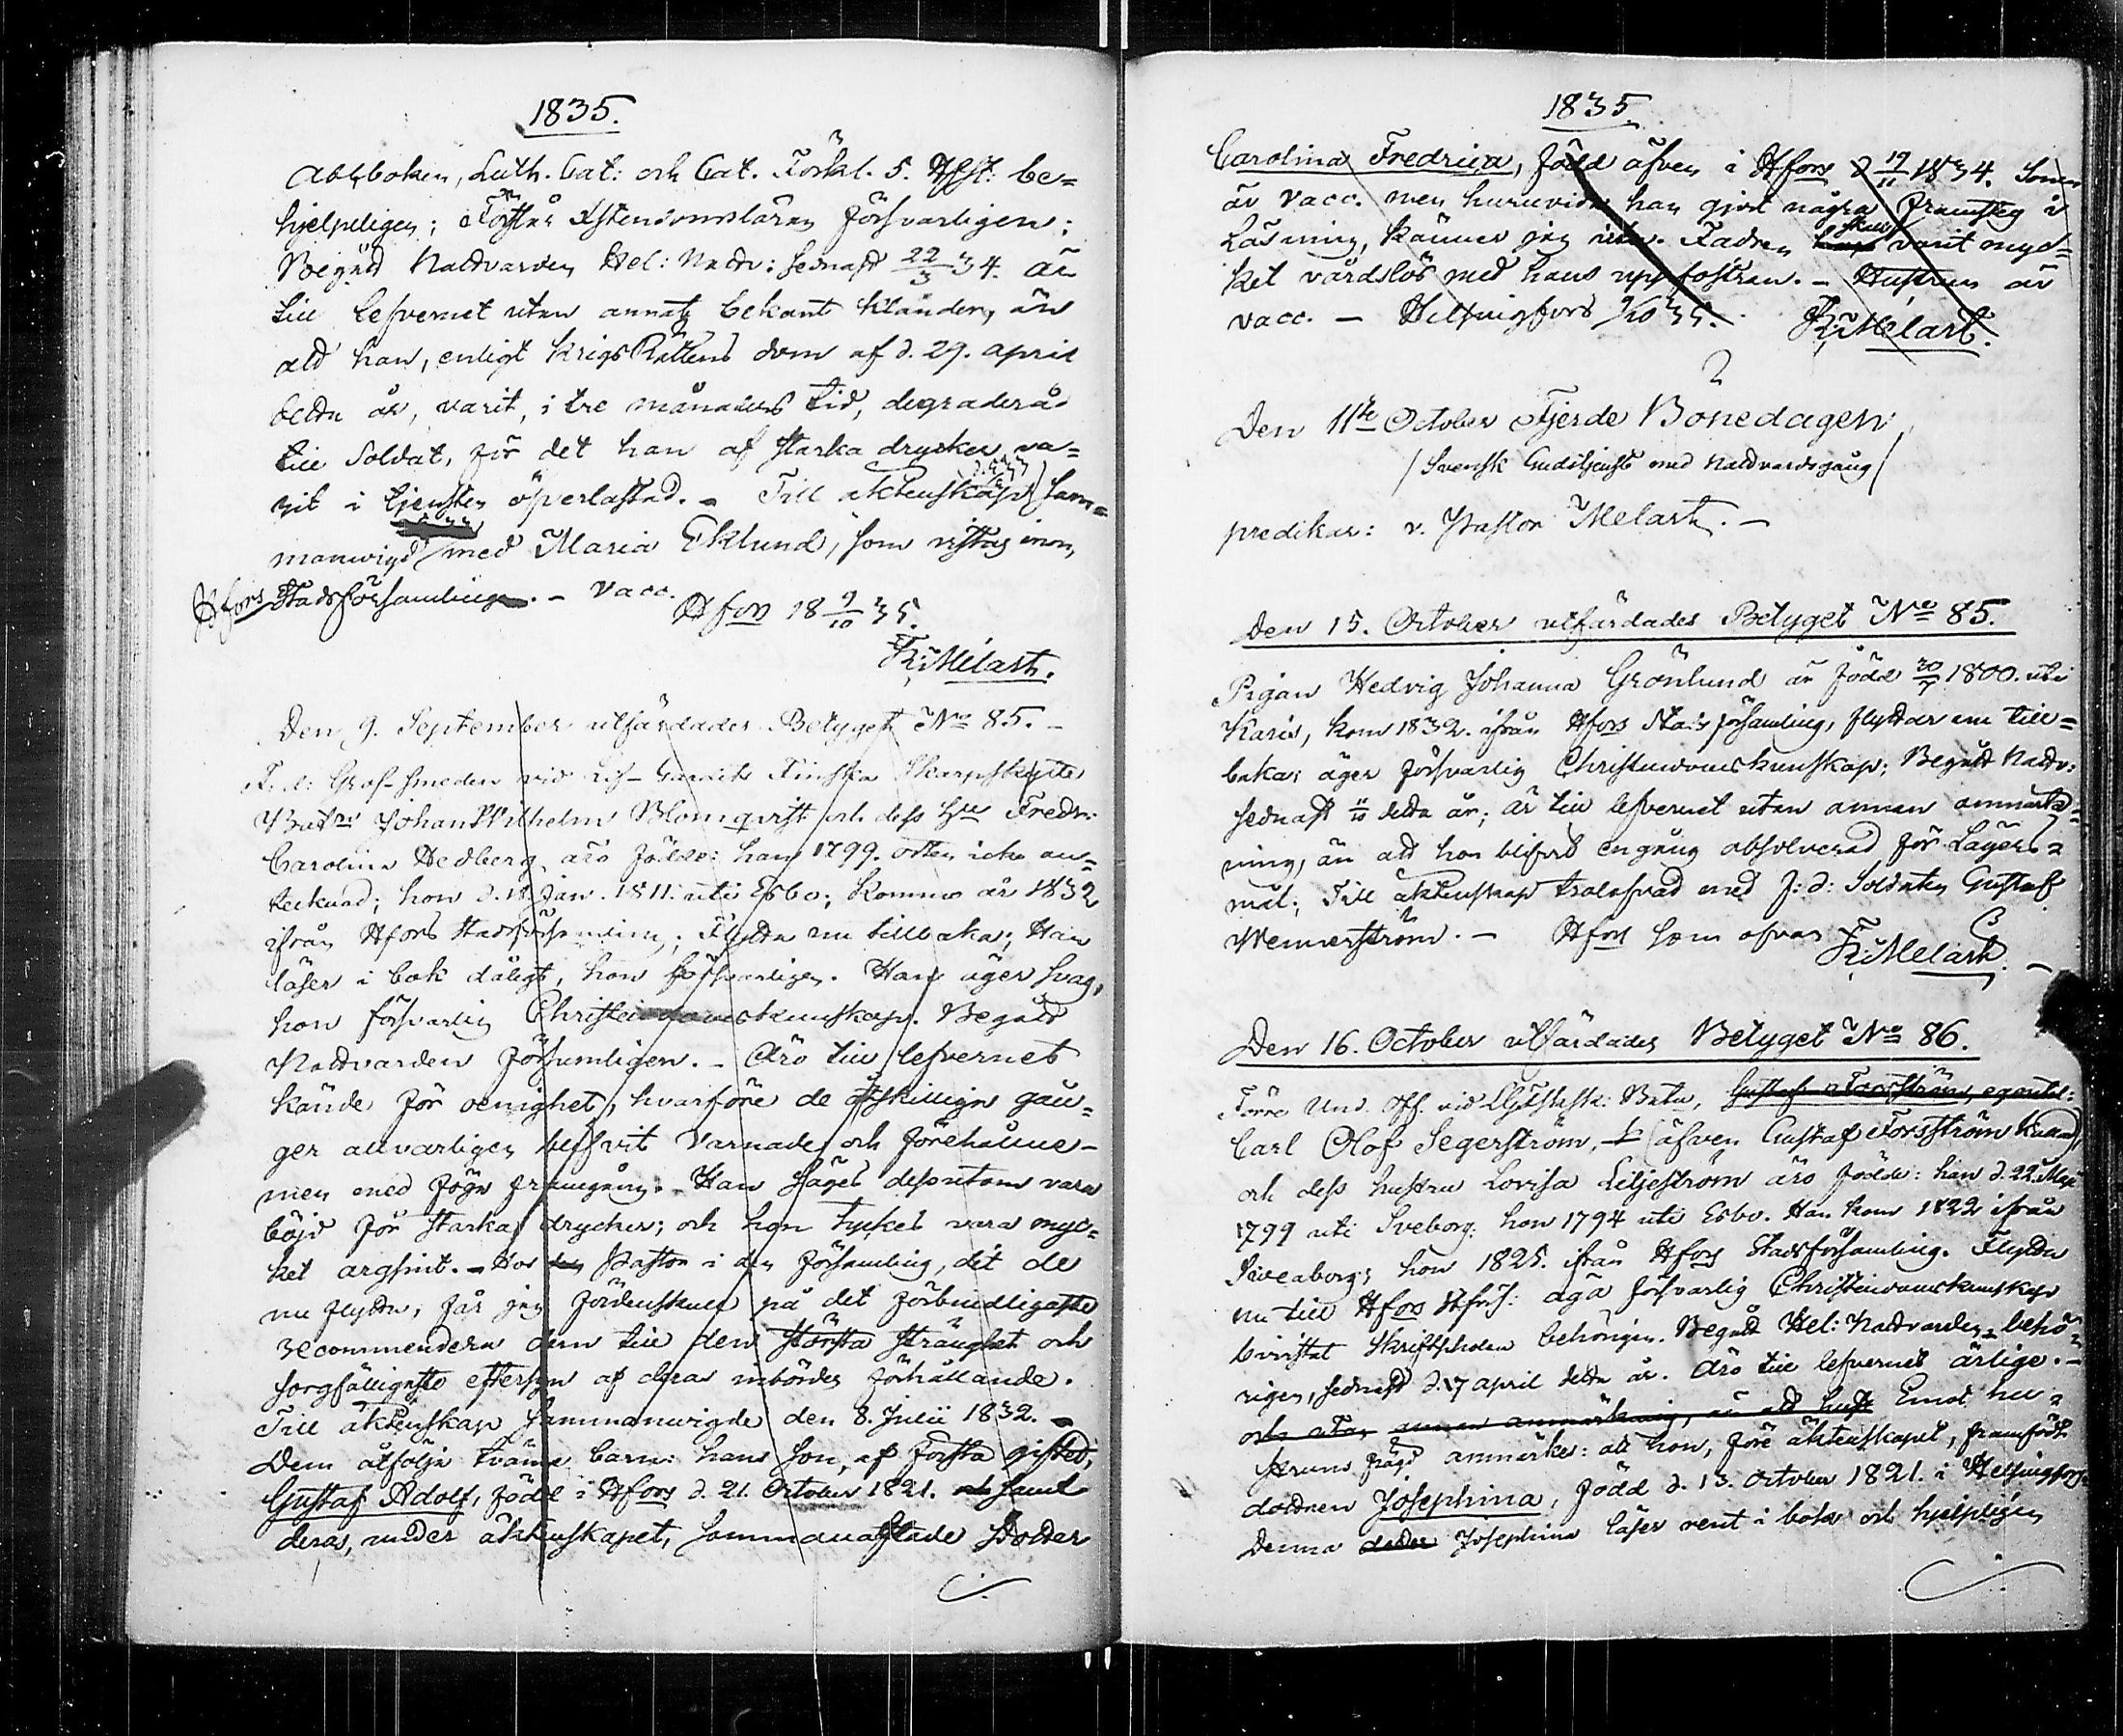 1835.
Abcboken, Luth. Cat: och Cat. Förkl. 5. Hfst: be=
hjelpeligen; Förstår Christendomsläran försvarligen;
Begådt Nattvarden Hel: Nattv: sednast 22/3 34. är
till lefvernet utan annat bekant klander, än
att han, enligt KrigsRättens dom af d. 29. april
detta år, varit, i tre månaders tid, degraderad
till Soldat, för det han af starka drycker va=
rit i tjensten öfverlastad. - Till äktenskap sam=
manvigd med Maria Eklund, som vistas inom
Hfors Stadsförsamling. - Vacc.
Hfors 18 9/10 35.
Fr: Melart.
Den 9. September utfärdades Betyget No 85. -
F. d: Grof-Smeden vid Lif-Gardets Finska Skarpskytte
Batn Johan Wilhelm Blomqvist och dess Hu Fredr:
Carolina Hedberg äro födde: han 1799. orten icke an=
tecknad; hon d. 11. Jan. 1811. uti Esbo; Kommo år 1832
ifrån Hfors Stadsförsamling; Flytta nu tillbaka; Han
läser i bok dåligt, hon försvarligen. Han äger svag,
hon försvarlig Christendomskunskap. Begådt
Nattvarden försumligen. - Äro till lefvernet
kände för oenighet, hvarföre de åtskillige gån=
ger allvarligen blifvit varnade och förehållne -
men med föga framgång. Han säges dessutom vara
böjd för starka drycker; och hon tyckes vara myc=
ket argsint. - Hos Pastor i den församling, dit de
nu flytta, får jag fördenskull på det förbindligaste
recommendera dem till den största stränghet och
sorgfälligaste eftersyn af deras inbördes förhållande.
Till äktenskap sammanvigde den 8. Julii 1832. -
Dem åtfölja tvänne barn: hans son, af första giftet,
Gustaf Adolf, född i Hfors d. 21. October 1821. samt
deras, under äktenskapet, sammanaflade Dotter
1835.
Carolina Fredrica, född äfven i Hfors d 19/11 1834. Sonen
är vacc. men huruvida han gjort några framsteg i
Läsning, känner jag icke. Fadren skall varit myc=
ket vårdslös med hans uppfostran. - Hustrun är
vacc. - Helsingfors 9/10 35. Fr: Melart.
Den 11te October Fjerde Bönedagen
/ Svensk Gudstjenst med Nattvardsgång /
predikar: v. Pastor Melart. -
Den 15. October utfärdades Betyget No 85.
Pigan Hedvig Johanna Grönlund är född 1800. uti
Karis, kom 1832. ifrån Hfors Stadsförsamling, flyttar nu till=
baka; äger försvarlig Christendomskunskap; Begådt Nattv:
sednast 11/10 detta år; är till lefvernet utan annan anmärk=
ning, än att hon blifvit en gång absolverad för Lägers=
mål; Till äktenskap trolofvad med f: d: Soldaten Gustaf
Wennerström. - Hfors som ofvan Fr: Melart. -
Den 16. October utfärdades Betyget No 86.
Förre Und. Off. vid Batn, Gustaf Forsström, egentel:
Carl Olof Segerström, (äfven Gustaf Forsström kallad)
och dess hustru Lovisa Liljeström äro födde: han d. 22. Maji
1799 uti Sveborg: hon 1794 uti Esbo. Han kom 1822 ifrån
Sveaborg; hon 1825. ifrån Hfors Stadsförsamling. Flytta
nu till Hfors Stförs: äga försvarlig Christendomskunskap
bivistat Skriftskolan behörigen. Begådt Hel: Nattvarden behö=
rigen, sednast d. 17 april detta år. Äro till lefvernet ärlige. -
och utan annan anmärkning, än att hust Emot hu=
struns frägd anmärkes: att hon, före äktenskapet, framfödt
dottren Josephina, född d. 13. October 1821. i Helsingfors
Denna Josephina läser rent i bok och hjelpligen